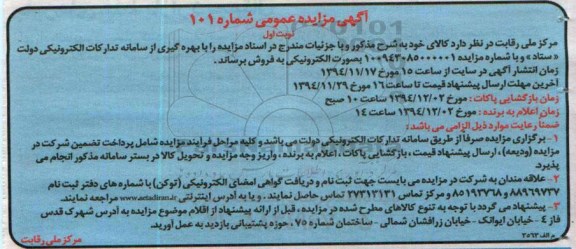 آگهی مزایده عمومی شماره ۱۰۱
نوبت اول
مرکز ملی رقابت در نظر دارد کالای خود به شرح مذکور و با جزئیات مندرج در اسناد مزایده را با بهره گیری از سامانه تدارکات الکترونیکی دولت
« ستاد » و با شماره مزایده ۱۰۰۹۴۳۰۸۵۰۰۰۰۰۱ بصورت الکترونیکی به فروش برساند .
زمان انتشار آگهی در سایت از ساعت ۱۵ مورخ ۱۳۹۴/۱۱/۱۷
آخرین مهلت ارسال پیشنهاد قیمت تا ساعت ۱۶ مورخ ۱۳۹۴/۱۱/۲۹
زمان بازگشایی پاکات : مورخ ۱۳۹۴/۱۲/۰۲ ساعت ۱۰ صبح
زمان اعلام به برنده : مورخ ۱۳۹۴/۱۲/۰۲ ساعت ۱۴
ضمناً رعایت موارد ذیل الزامی می باشد :
۱- برگزاری مزایده صرفاً از طریق سامانه تدارکات الکترونیکی دولت می باشد و کلیه مراحل فرایند مزایده شامل پرداخت تضمین شرکت در
مزایده (ودیعه) ، ارسال پیشنهاد قیمت ، بازگشایی پاکات ، اعلام به برنده ، واریز وجه مزایده و تحویل کالا در بستر سامانه مذکور انجام می
پذیرد.
۲- علاقه مندان به شرکت در مزایده می بایست جهت ثبت نام و دریافت گواهی امضای الکترونیکی (توکن) با شماره های دفتر ثبت نام
۸۸۹۶۹۷۳۷ و ۸۵۱۹۳۷۶۸ و مرکز تماس ۲۷۳۱۳۱۳۱ تماس حاصل نمایند . و یا به آدرس اینترنتی www.setadiran.ir مراجعه نمایند.
۳- پیشنهاد می گردد با توجه به تنوع کالاهای مطرح شده در مزایده ، قبل از ارائه پیشنهاد از اقلام موضوع مزایده به آدرس شهرک قدس
فاز ٤ - خیابان ایوانک - خیابان زرافشان شمالی - ساختمان شماره ۷۵ ، حوزه پشتیبانی بازدید به عمل آورید.
م الف ۳۵۶۳
مرکز ملی رقابت